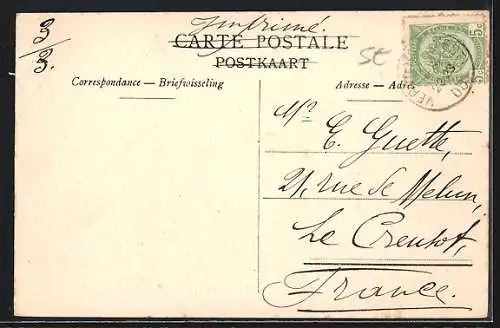 Imprimé.
CARTE POSTALE
POSTKAART
3/3.
5c
Correspondance — Briefwisseling
Adresse — Adres
Mr
E. Guette,
21, rue de Melun,
Le Creusot,
France.